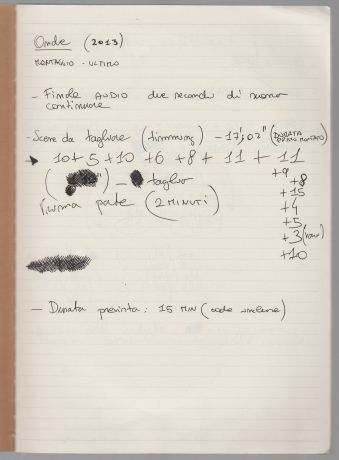 Onde (2013)
MONTAGGIO - ULTIMO
- Finale AUDIO due secondi di suono
continuare
- Scene da tagliare (timming) - 17':02" (DURATA
10+5+10+6+8+11+11
+9
+8
( ) - taglio
+15
Prima parte (2 MINUTI)
+4
+5
+3
+10
- Durata prevista: 15 MIN (code